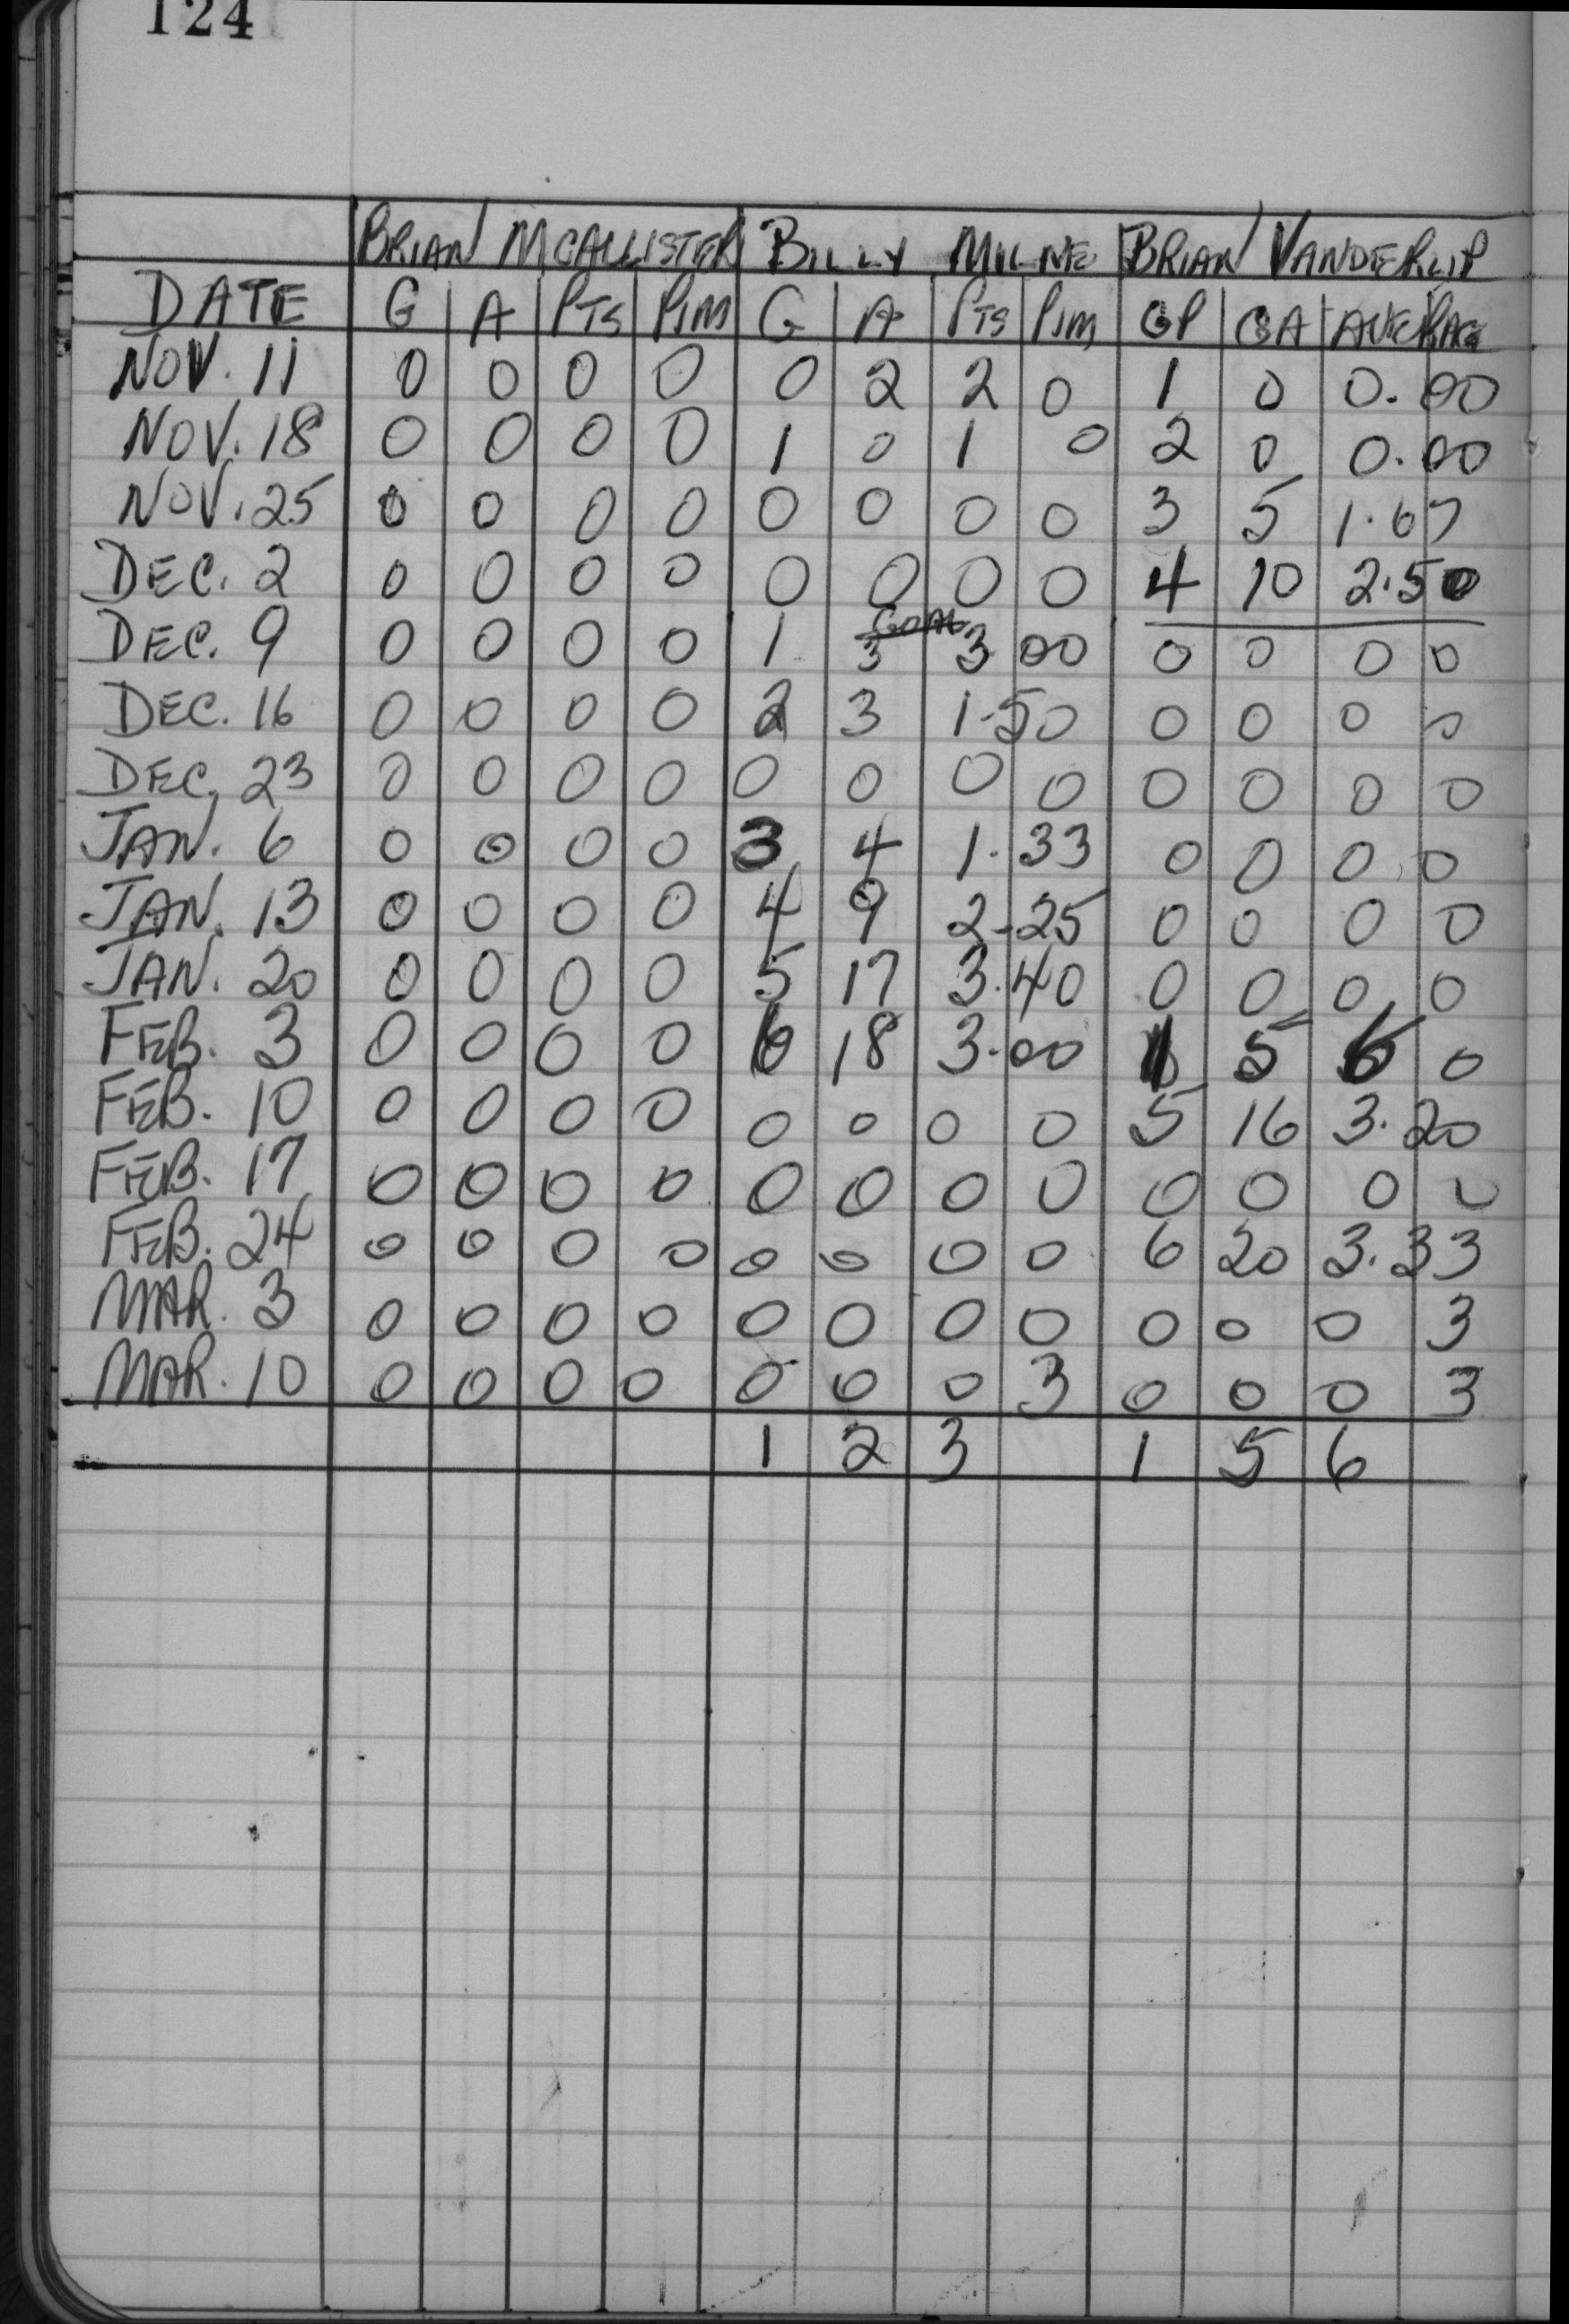 124
BRIAN MCALLISTER BILLY MILNE BRIAN VANDERLIP
DATE G A PTS PIM G A PTS PIM GP GA AVERAGE
NOV. 11 0 0 0 0 0 2 2 0 1 0 0.00
NOV. 18 0 0 0 0 1 0 1 0 2 0 0.00
NOV. 25 0 0 0 0 0 0 0 0 3 5 1.67
DEC. 2 0 0 0 0 0 0 0 0 4 10 2.50
GOAL
DEC. 9 0 0 0 0 1 3 3 00 0 0 0 0
DEC. 16 0 0 0 0 2 3 1.50 0 0 0 0
DEC. 23 0 0 0 0 0 0 0 0 0 0 0 0
JAN. 6 0 0 0 0 3 4 1.33 0 0 0 0
JAN. 13 0 0 0 0 4 9 2.25 0 0 0 0
JAN. 20 0 0 0 0 5 17 3.40 0 0 0 0
FEB. 3 0 0 0 0 6 18 3.00 1 5 6 0
FEB. 10 0 0 0 0 0 0 0 0 5 16 3.20
FEB. 17 0 0 0 0 0 0 0 0 0 0 0 0
FEB. 24 0 0 0 0 0 0 0 0 6 20 3.33
MAR. 3 0 0 0 0 0 0 0 0 0 0 0 3
MAR. 10 0 0 0 0 0 0 0 3 0 0 0 3
1 2 3 1 5 6